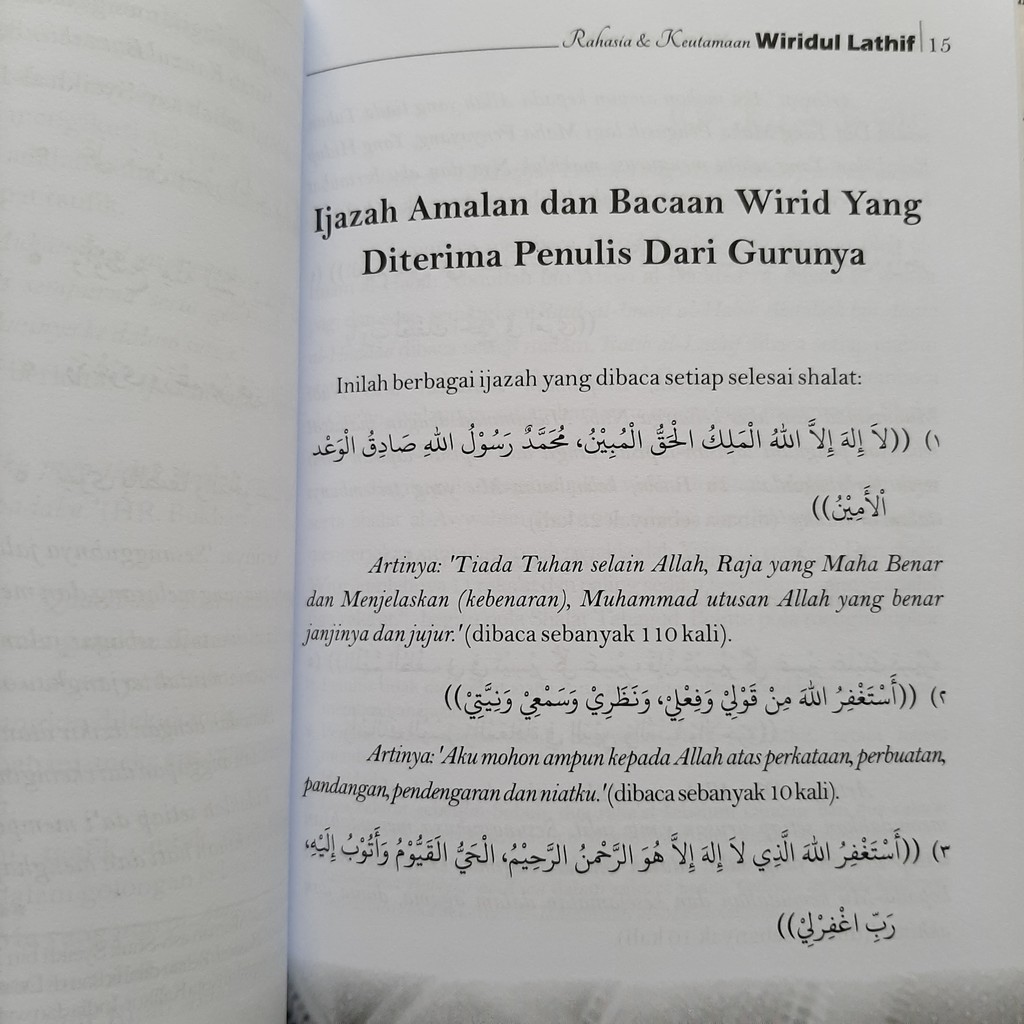 Rahasia & Keutamaan Wiridul Lathif | 15
Ijazah Amalan dan Bacaan Wirid Yang
Diterima Penulis Dari Gurunya
Inilah berbagai ijazah yang dibaca setiap selesai shalat:
١) ((لاَ إِلهَ إِلاَّ اللهُ الْمَلِكُ الْحَقُّ الْمُبِيْنُ، مُحَمَّدٌ رَسُوْلُ اللهِ صَادِقُ الْوَعْد
اْلأَمِيْنُ))
Artinya: 'Tiada Tuhan selain Allah, Raja yang Maha Benar
dan Menjelaskan (kebenaran), Muhammad utusan Allah yang benar
janjinya dan jujur.' (dibaca sebanyak 110 kali).
٢) ((أَسْتَغْفِرُ اللهَ مِنْ قَوْلِيْ وَفِعْلِيْ، وَنَظَرِيْ وَسَمْعِيْ وَنِيَّتِيْ))
Artinya: 'Aku mohon ampun kepada Allah atas perkataan, perbuatan,
pandangan, pendengaran dan niatku.' (dibaca sebanyak 10 kali).
٣) ((أَسْتَغْفِرُ اللهَ الَّذِي لاَ إِلهَ إِلاَّ هُوَ الرَّحْمنُ الرَّحِيْمُ، الْحَيُّ الْقَيُّوْمُ وَأَتُوْبُ إِلَيْهِ،
رَبِّ اغْفِرْلِيْ))